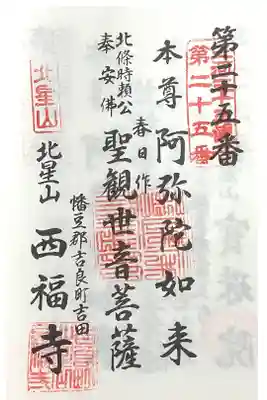 第三十五番
第二十五番
本尊阿弥陀如来
春日作
北條時頼公
奉安佛
聖観世音菩薩
幡豆郡吉良町吉田
北星山
西福寺
北星山